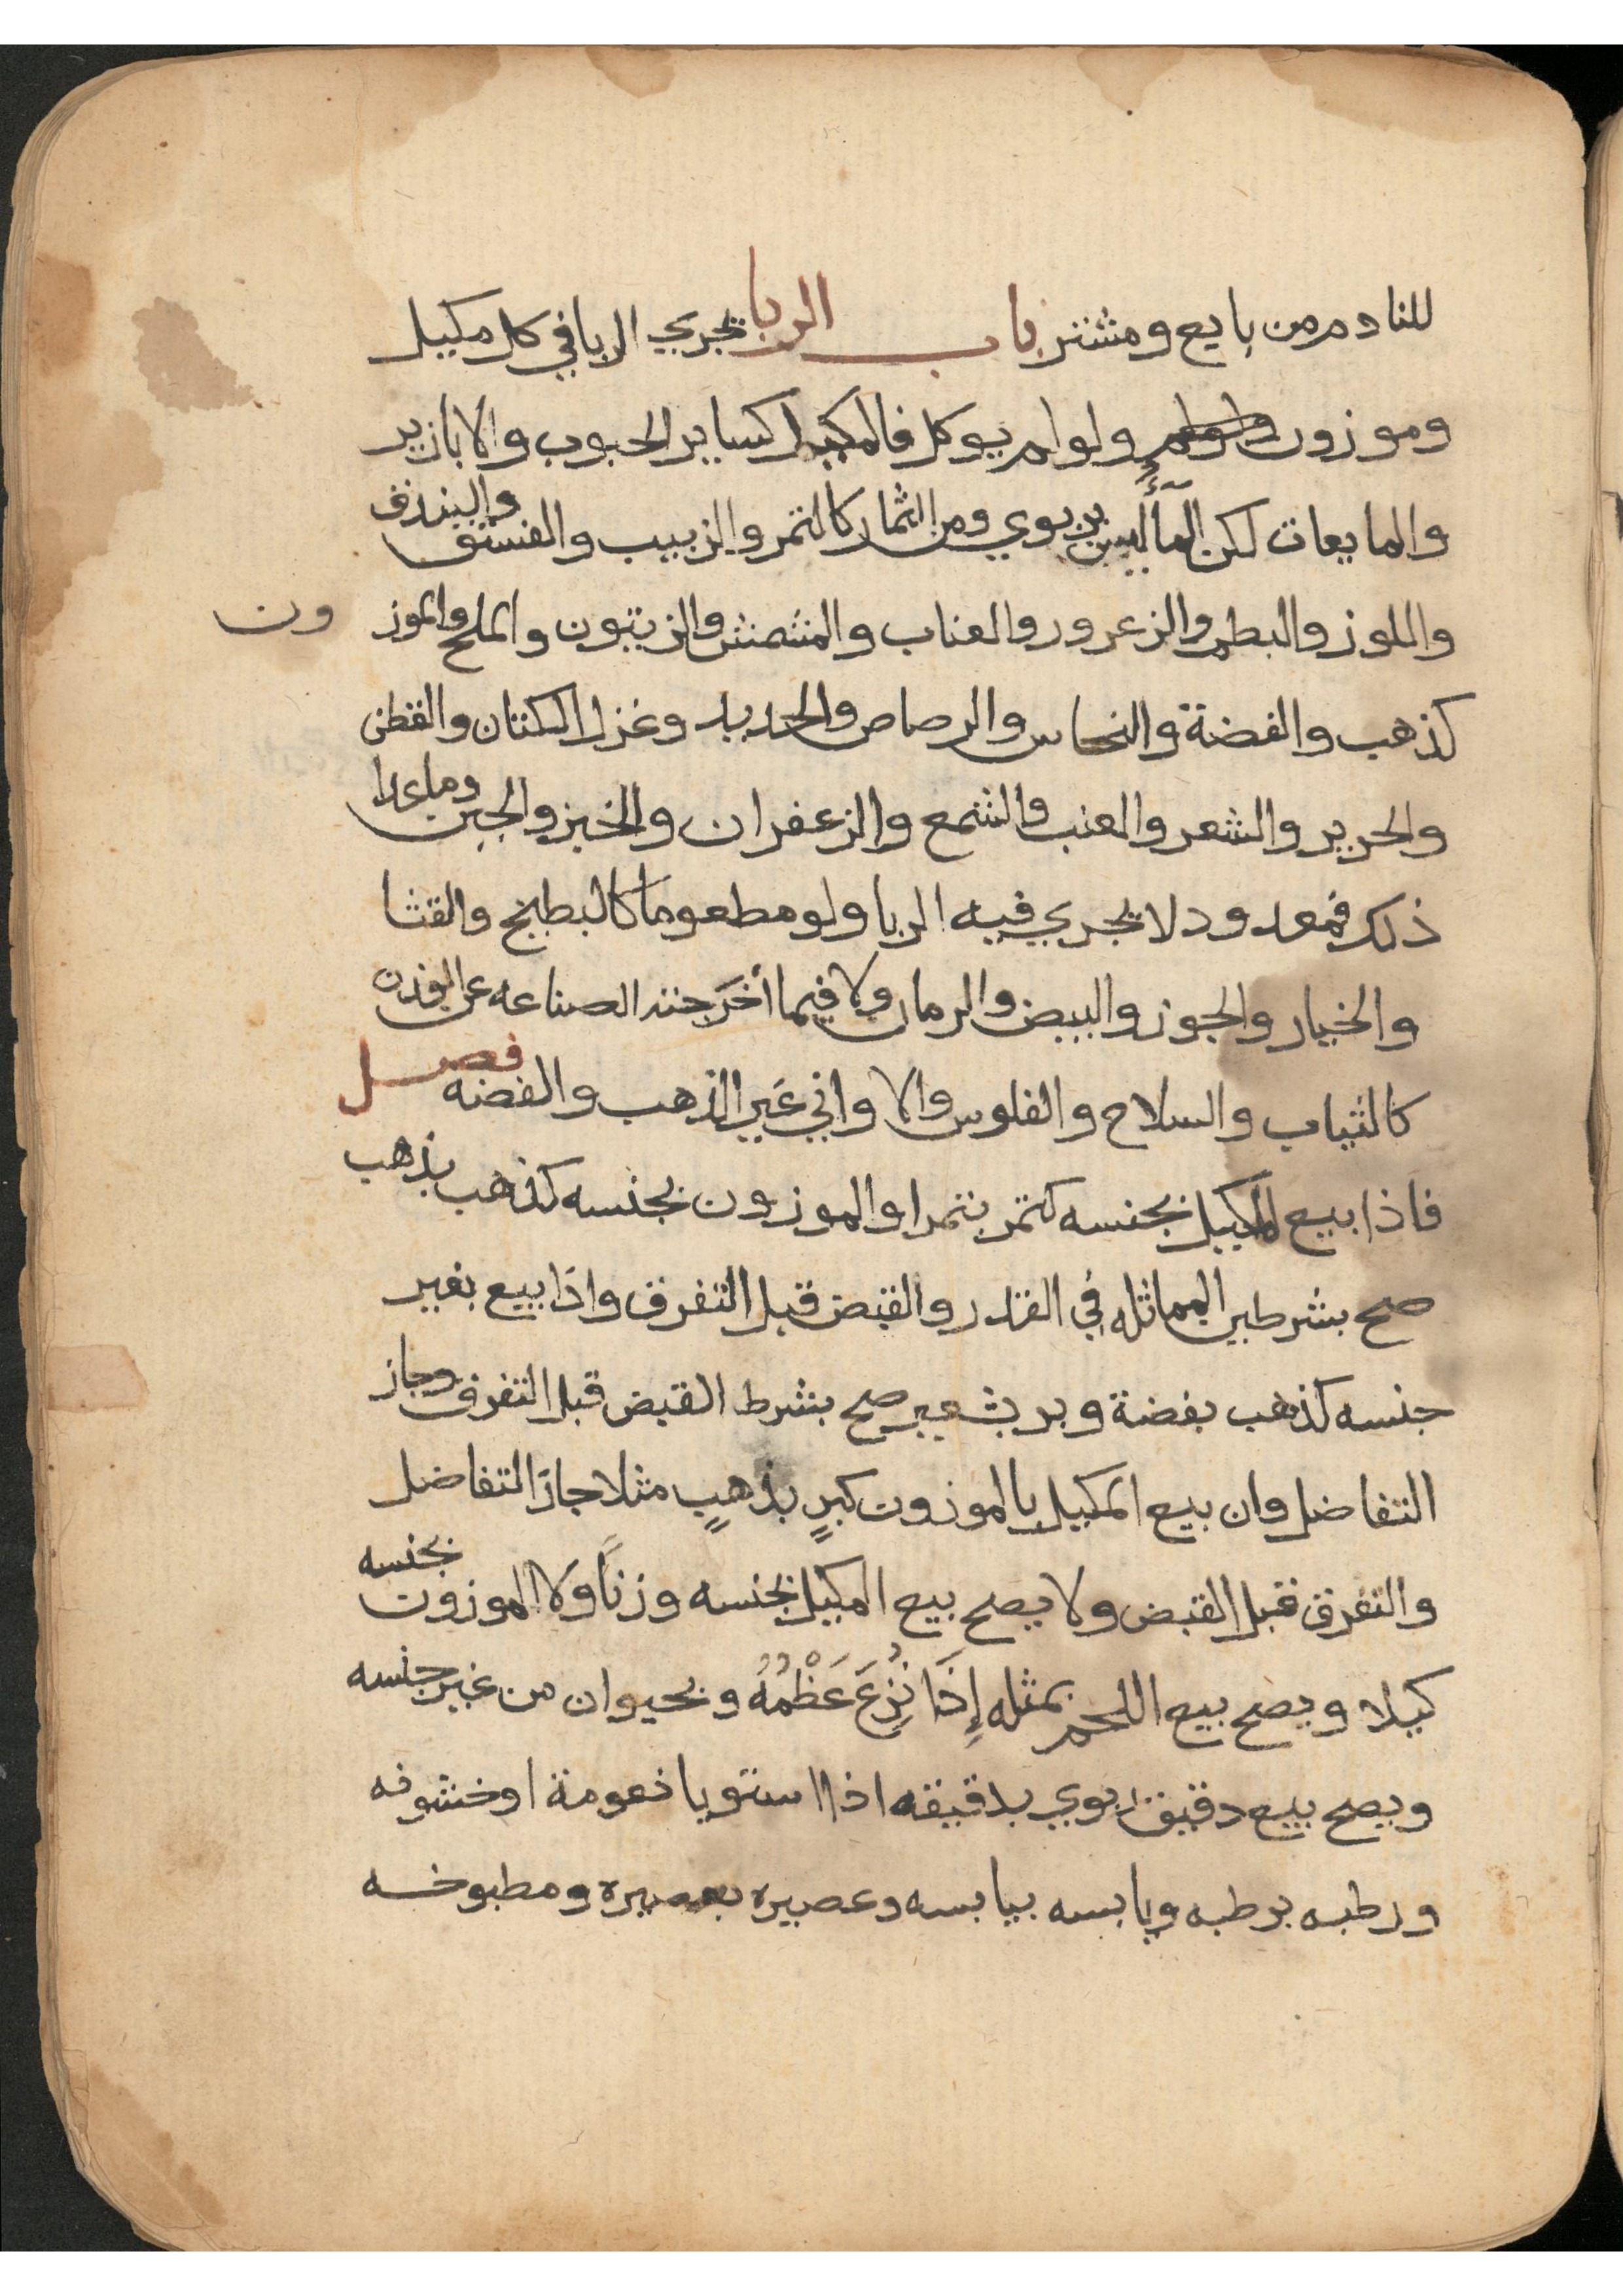 للنادم من بايع ومشتر باب الربا يجري الربا في كل مكيل
وموزون ولو لم يوكل فالمكيل كساير الحبوب والابازير
والمايعات لكن المآء ليس بربوي ومن الثمار كالتمر والزبيب والفستق والبندق
واللوز والبطم والزعرور والعناب والمشمش والزيتون والملح والموزون
كذهب والفضة والنحاس والرصاص والحديد وغزل الكتان والقطن
والحرير والشعر والعنب والشمع والزعفران والخبز والجبن وما عدا
ذلك فمعدود لا يجري فيه الربا ولو مطعوما كالبطيخ والقثا
والخيار والجوز والبيض والرمان ولا فيما أخرجته الصناعه عن الوزن
كالثياب والسلاح والفلوس والاواني غير الذهب والفضه فصل
فاذا بيع المكيل بجنسه كتمر بتمر او الموزون بجنسه كذهب بذهب
صح بشرطين المماثله في القدر والقبض قبل التفرق واذا بيع بغير
جنسه كذهب بفضة وبر بشعير صح بشرط القبض قبل التفرق وجاز
التفاضل وان بيع المكيل بالموزون كبرٍ بذهبٍ مثلا جاز التفاضل
والتفرق قبل القبض ولا يصح بيع المكيل بجنسه وزناً ولا الموزون بجنسه
كيلا ويصح بيع اللحم بمثله إِذَا نُزِعَ عَظْمُهُ وبحيوان من غير جنسه
ويصح بيع دقيق ربوي بدقيقه اذا استويا نعومة او خشونه
ورطبه برطبه ويابسه بيابسه وعصيره بعصيره ومطبوخه